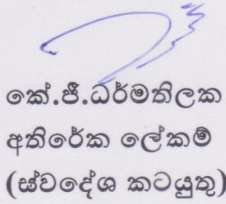 කේ.ජී.ධර්මතිලක
අතිරේක ලේකම්
(ස්වදේශ කටයුතු)